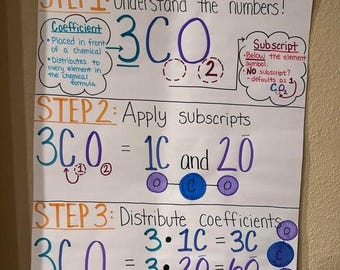 STEP 1: Understand the numbers!
Coefficient
• Placed in front
of a chemical
• Distributes to
every element in
the chemical
formula.
3CO
2
Subscript
• Below the element
symbol.
• NO subscript?
- defaults as 1
STEP 2: Apply subscripts
3CO = 1C and 2O
1 2
O C O
STEP 3: Distribute coefficients
3 • 1C = 3C
3CO = 3 • 2O = 6O
O
C
O